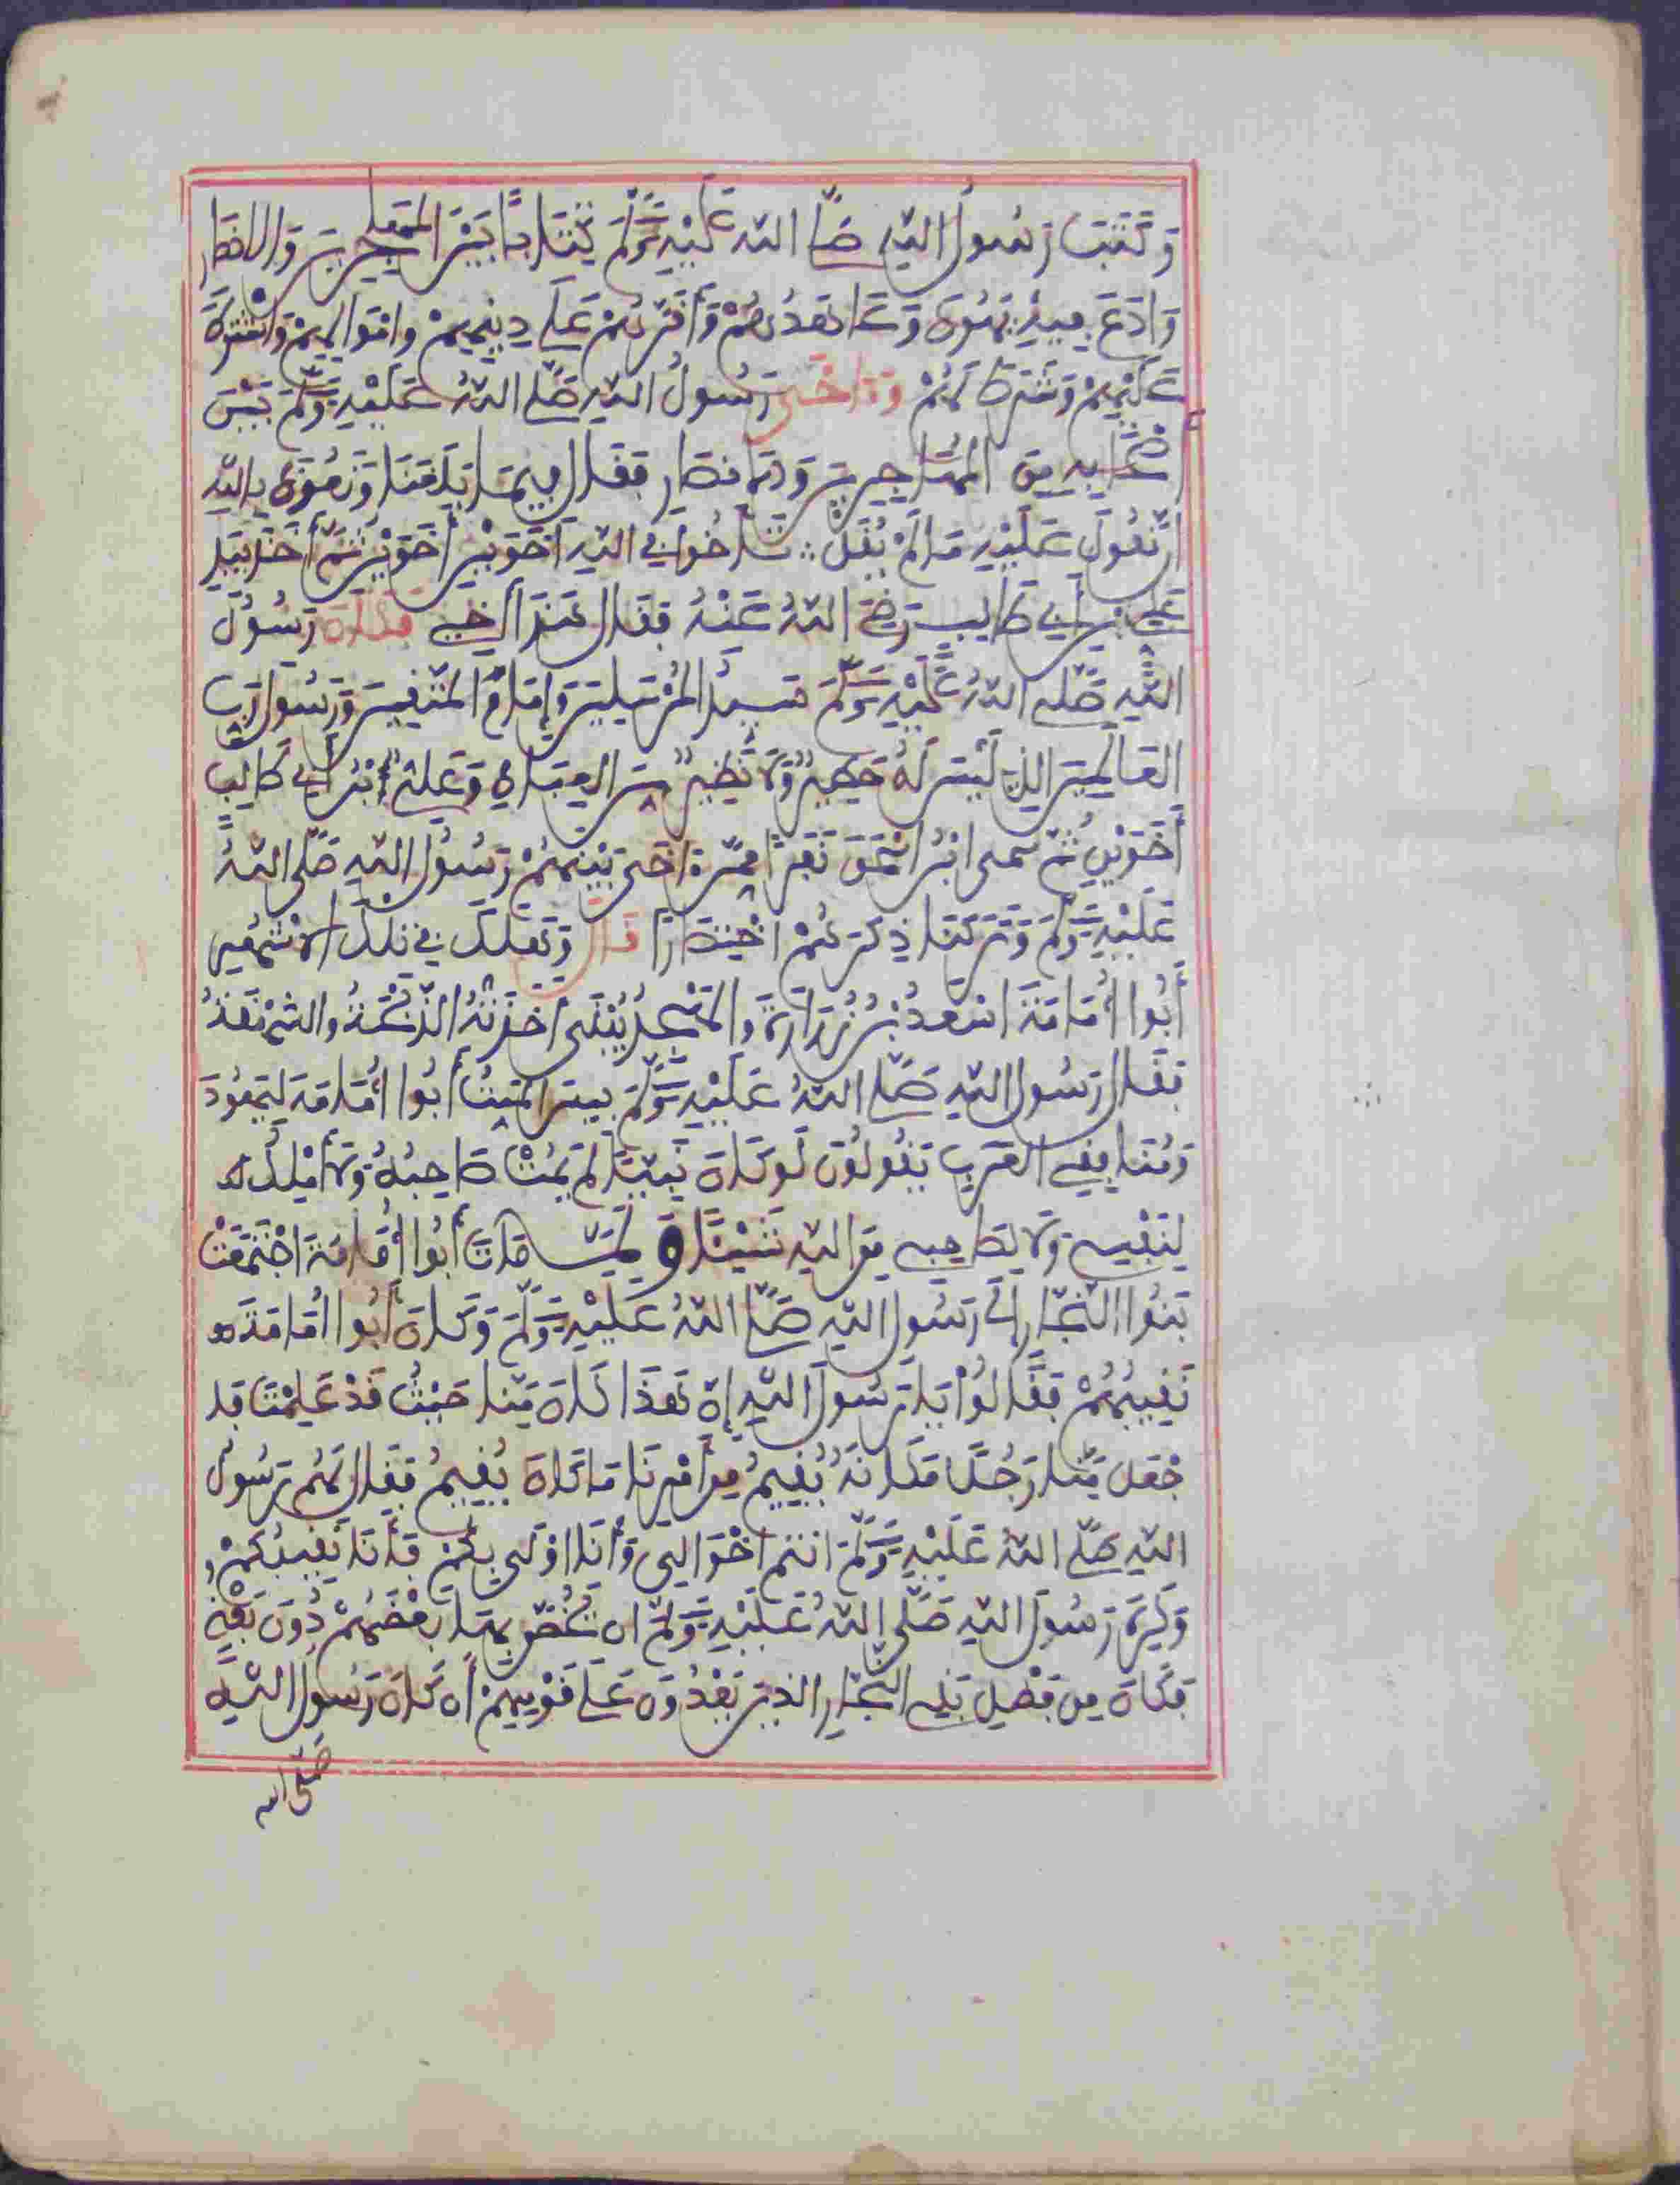 وَكَتَبَ رَسُولُ اللهِ صَلَّى اللهُ عَلَيْهِ وَسَلَّمَ كِتَابًا بَيْنَ المُهَاجِرِينَ وَالانصَارِ
وَادَعَ فِيهِ يَهُودَ وَعَاهَدَهُمْ وَأَقَرَّهُمْ عَلَى دِينِهِمْ وامْوَالِهِمْ وَاشْتَرَطَ
عَلَيْهِمْ وَشَرَطَ لَهُمْ وَءَاخَى رَسُولُ اللهِ صَلَّى اللهُ عَلَيْهِ وَسَلَّمَ بَيْنَ
أَصْحَابِهِ مِنَ المُهَاجِرِينَ وَالانصَارِ فَقَالَ فِيمَا بَلَغَنَا وَنَعُوذُ بِاللهِ
أَن نَّقُولَ عَلَيْهِ مَا لَمْ يَقُلْ تَآخُوا فِي اللهِ أَخَوَيْنِ أَخَوَيْنِ ثُمَّ أَخَذَ بِيَدِ
عَلِيِّ بْنِ أَبِي طَالِبٍ رَضِيَ اللهُ عَنْهُ فَقَالَ هَذَا أَخِي فَكَانَ رَسُولُ
اللهِ صَلَّى اللهُ عَلَيْهِ وَسَلَّمَ سَيِّدُ المُرْسَلِينَ وَإِمَامُ المُتَّقِينَ وَرَسُولُ رَبِّ
العَالَمِينَ الذِي لَيْسَ لَهُ خَطِيرٌ وَلَا نَظِيرٌ مِنَ العِبَادِ وَعَلِيُّ ابْنُ أَبِي طَالِبٍ
أَخَوَيْنِ ثُمَّ سَمَّى ابْنُ اسْحَقَ نَفَرًا مِمَّنْ ءَاخَى بَيْنَهُمْ رَسُولُ اللهِ صَلَّى اللهُ
عَلَيْهِ وَسَلَّمَ وَتَرَكْنَا ذِكْرَهُمْ اخْتِصَارًا قَالَ وَهَلَكَ فِي تِلْكَ الاشْهُرِ
أَبُوا أُمَامَةَ اسْعَدُ بْنُ زُرَارَةَ وَالمَسْجِدُ يُبْنَى أَخَذَتْهُ الذُّبْحَةُ وَالشَّهْقَةُ
فَقَالَ رَسُولُ اللهِ صَلَّى اللهُ عَلَيْهِ وَسَلَّمَ بِيسَ المَيِّتُ أَبُوا أُمَامَةَ لِيَهُودَ
وَمُنَافِقِي العَرَبِ يَقُولُونَ لَوْ كَانَ نَبِيًّا لَمْ يَمُتْ صَاحِبُهُ وَلَا أَمْلِكُ
لِنَفْسِي وَلَا لِصَاحِبِي مِنَ اللهِ شَيْئًا وَلَمَّا مَاتَ أَبُوا أُمَامَةَ اجْتَمَعَتْ
بَنُوا النَّجَّارِ إِلَى رَسُولِ اللهِ صَلَّى اللهُ عَلَيْهِ وَسَلَّمَ وَكَانَ أَبُوا أُمَامَةَ
نَقِيبُهُمْ فَقَالُوا يَا رَسُولَ اللهِ إِنَّ هَذَا كَانَ مِنَّا حَيْثُ قَدْ عَلِمْتَ فَا
جْعَلْ مِنَّا رَجُلًا مَكَانَهُ يُقِيمُ مِنْ أَمْرِنَا مَا كَانَ يُقِيمُ فَقَالَ لَهُم رَسُولُ
اللهِ صَلَّى اللهُ عَلَيْهِ وَسَلَّمَ انتم أَخْوَالِي وَأَنَا اوْلَى بِكُمْ فَأَنَا نَقِيبُكُمْ
وَكَرِهَ رَسُولُ اللهِ صَلَّى اللهُ عَلَيْهِ وَسَلَّمَ ان يَخُصَّ بِهَا بَعْضَهُمْ دُونَ بَعْضٍ
فَكَانَ مِن فَضْلِ بَنِي النَّجَّارِ الذِينَ يَعُدُّونَ عَلَى قَوْمِهِمْ أَن كَانَ رَسُولُ اللهِ
صَلَّى الله